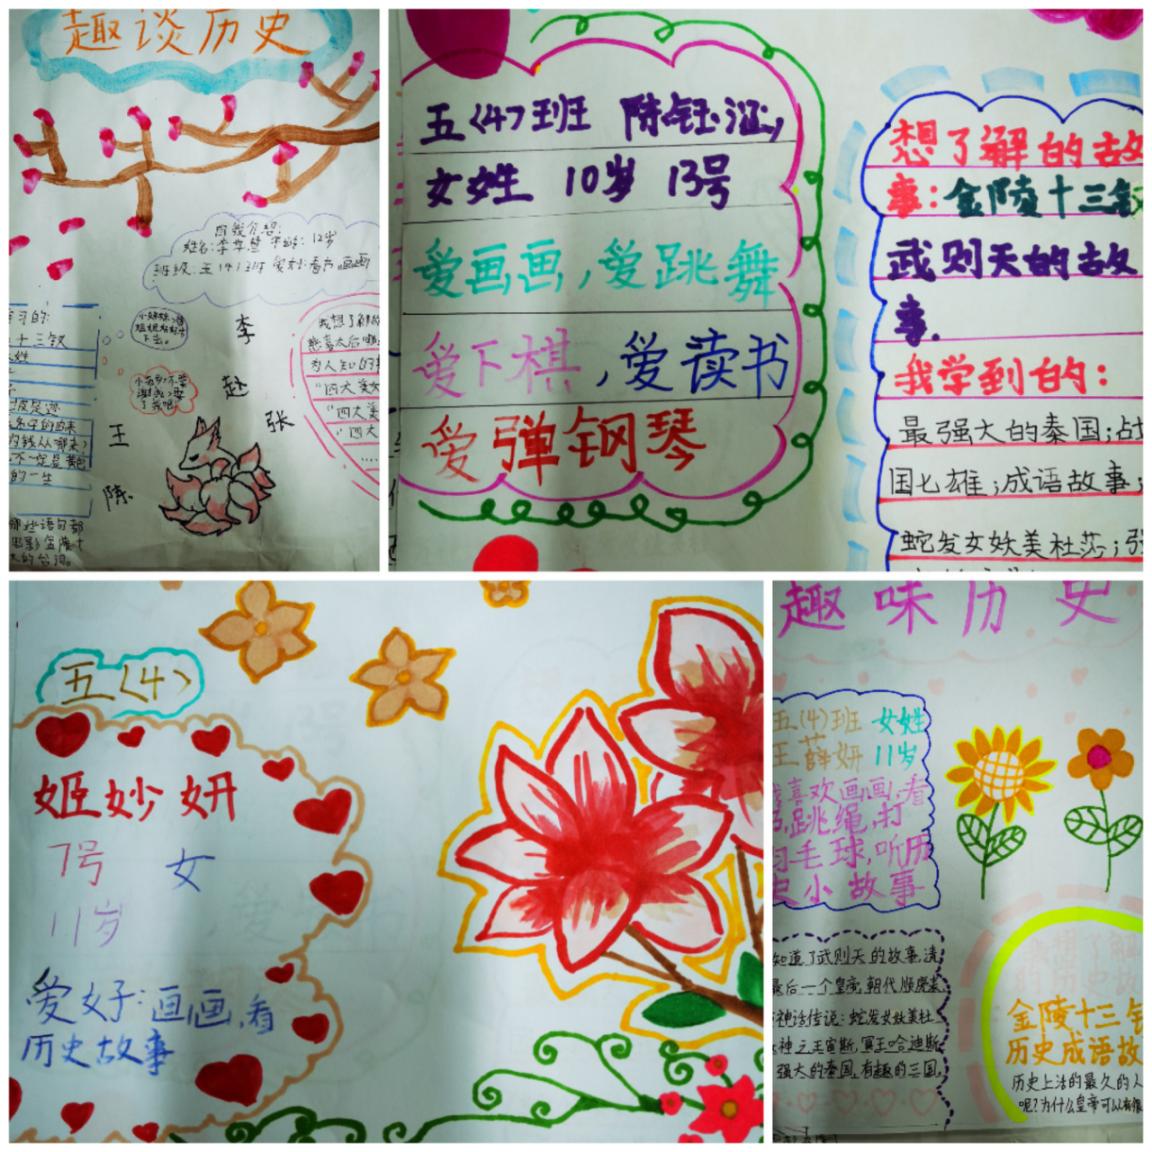 趣谈历史
自我介绍:
姓名:李 年龄:12岁
班级:五(4)班 爱好:看书,画画
李
赵
张
王
陈
学习的:
十三钗
姓
的一生
我想了解的
慈喜太后
为人知的
“四大美女
“四大美
“四大
五(4)班 陈钰涵
女姓 10岁 13号
爱画画,爱跳舞
爱下棋,爱读书
爱弹钢琴
想了解的故
事:金陵十三钗
武则天的故
事.
我学到的:
最强大的秦国;战
国七雄;成语故事;
蛇发女妖美杜莎;张
五(4)
姬妙妍
7号 女
11岁
爱好:画画,看
历史故事
趣味历史
五(4)班 女姓
王薛妍 11岁
我喜欢画画,看
书,跳绳,打
羽毛球,听历
史小故事
知道了武则天的故事,清
最后一个皇帝,朝代顺序表,
神话传说:蛇发女妖美杜
神之王宙斯,冥王哈迪斯
强大的秦国,有趣的三国,
我想了解
的历史故
金陵十三钗
历史成语故
历史上活的最久的人
呢?为什么皇帝可以有很